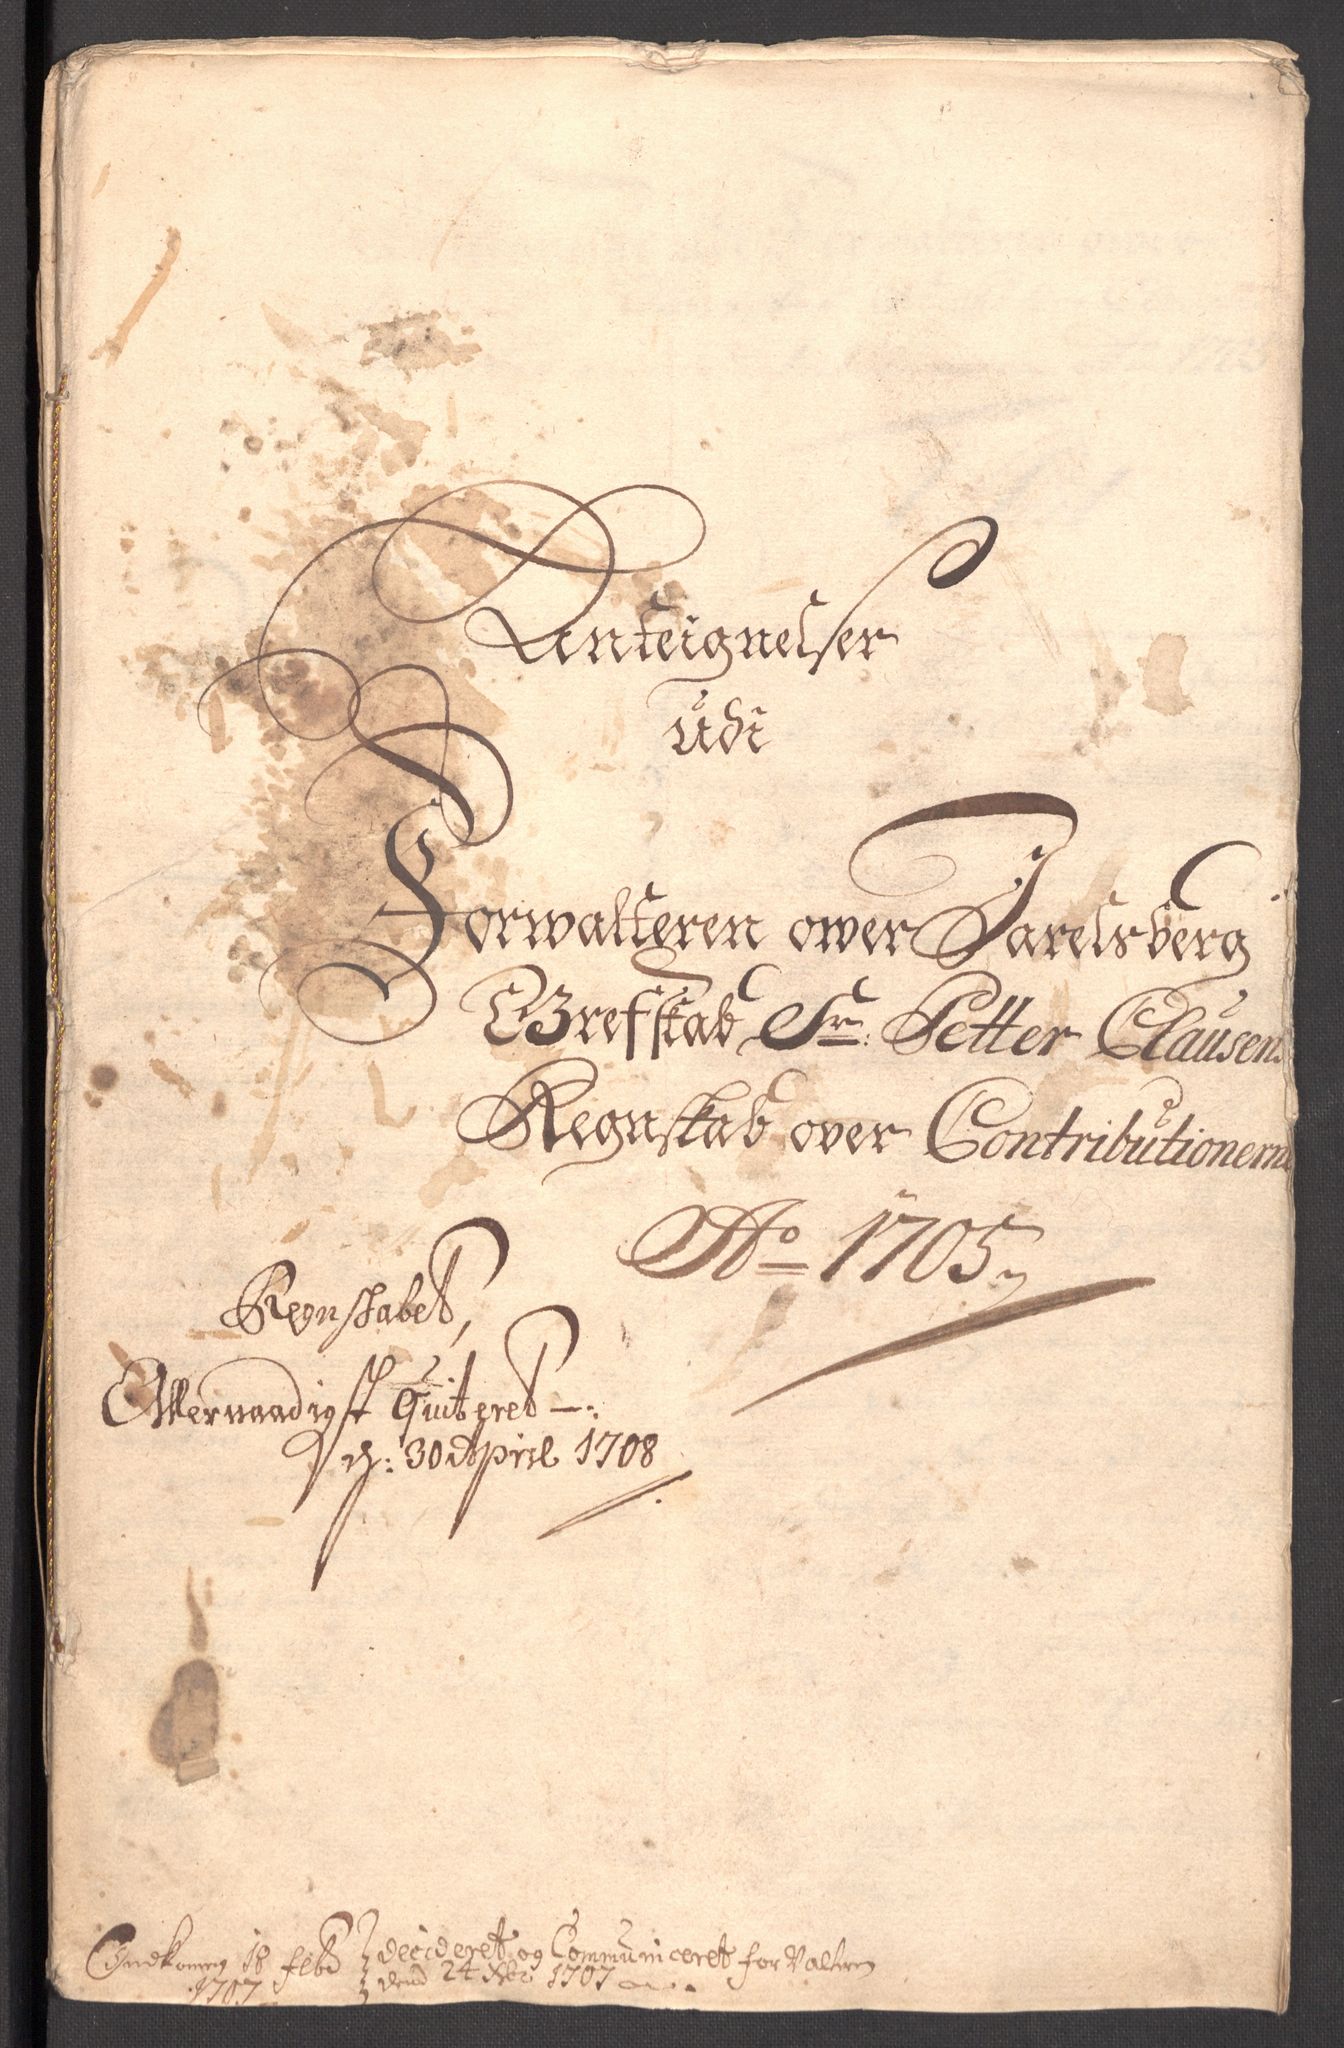 Anteignelser
udi
Forwalteren ower Jarelsberg
Grefskab Sr. Petter Clausens
Regnskab over Contributionerne
Ao 1705
Regnskabet,
Allernaadigst Quiteret
d: 30 April 1708
Indkomen 18 febr decideret og Communiceret forvalteren
1707 dend 24 Xbr 1707